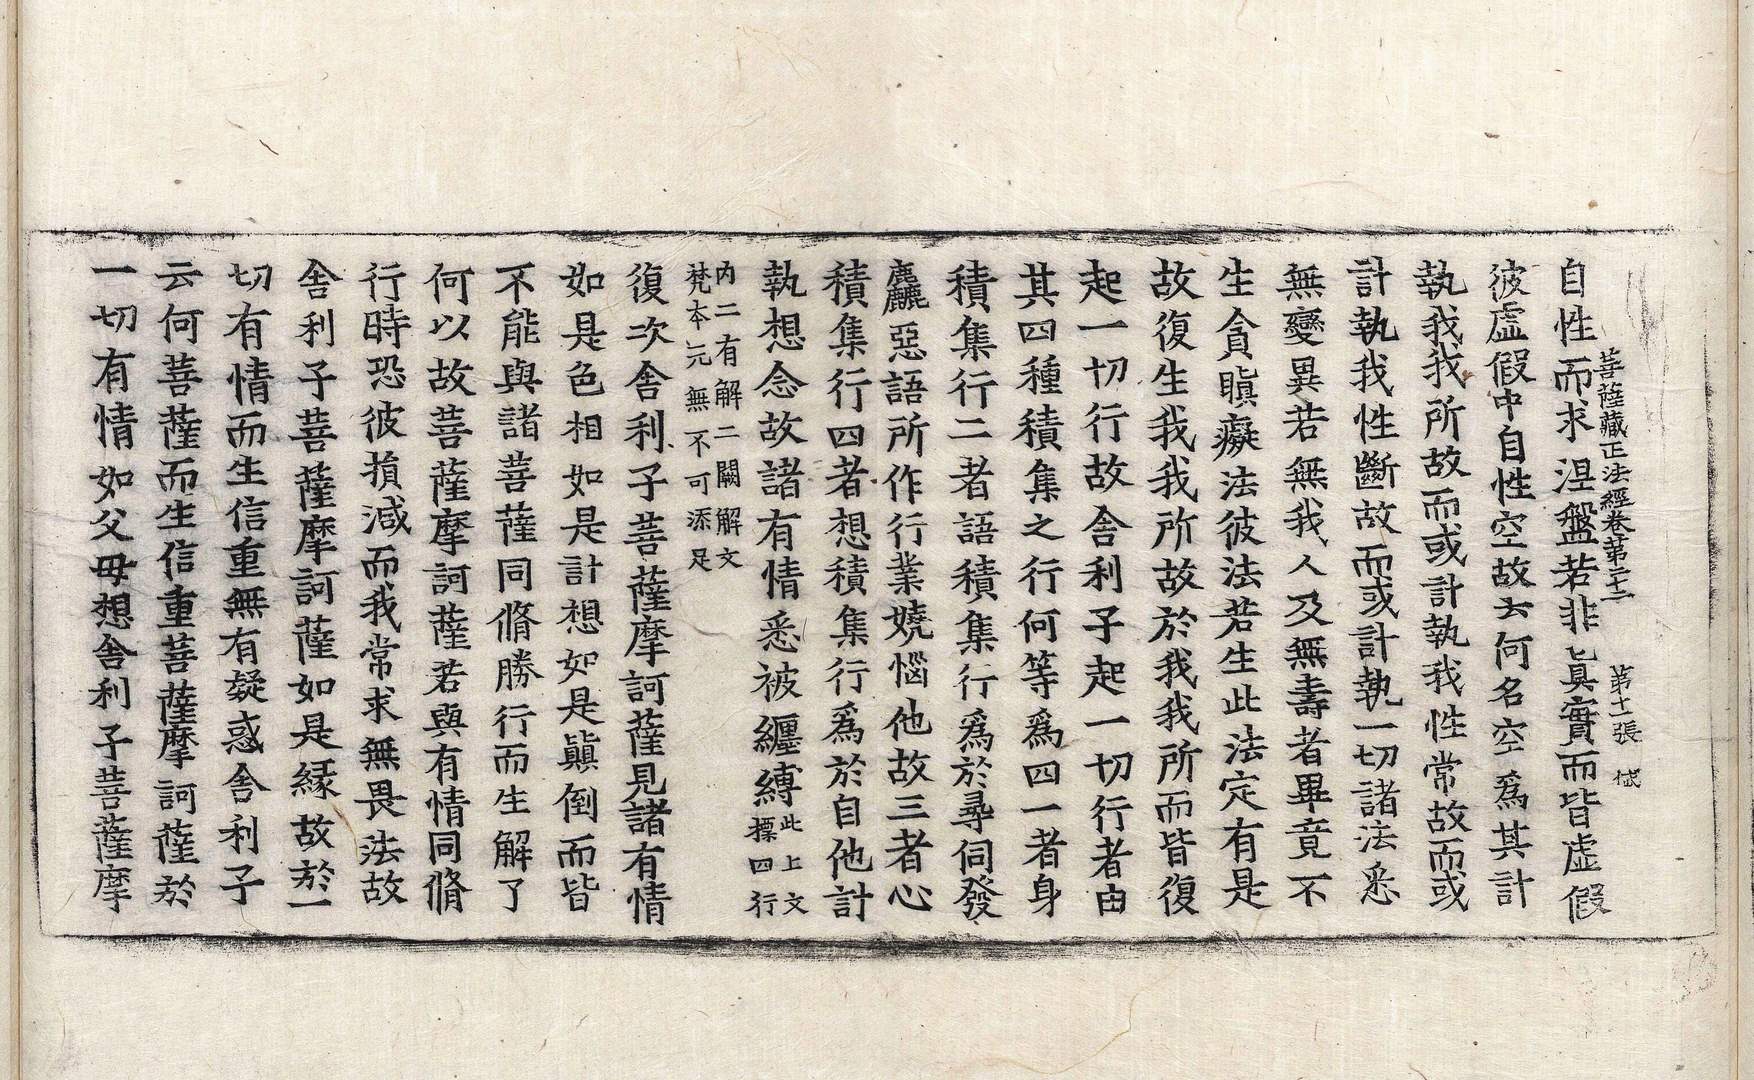 菩薩藏正法經卷第三十二 第十一張 㭍
自性而求涅盤若非眞實而皆虛假
彼虛假中自性空故云何名空爲其計
執我我所故而或計執我性常故而或
計執我性斷故而或計執一切諸法悉
無變異若無我人及無壽者畢竟不
生貪瞋癡法彼法若生此法定有是
故復生我我所故於我我所而皆復
起一切行故舍利子起一切行者由
其四種積集之行何等爲四一者身
積集行二者語積集行爲於尋伺發
麤惡語所作行業嬈惱他故三者心
積集行四者想積集行爲於自他計
執想念故諸有情悉被纏縛此上文標四行
內二有解二闕解文
梵本元無不可添足
復次舍利子菩薩摩訶薩見諸有情
如是色相如是計想如是顚倒而皆
不能與諸菩薩同脩勝行而生解了
何以故菩薩摩訶薩若與有情同脩
行時恐彼損減而我常求無畏法故
舍利子菩薩摩訶薩如是緣故於一
切有情而生信重無有疑惑舍利子
云何菩薩而生信重菩薩摩訶薩於
一切有情如父母想舍利子菩薩摩